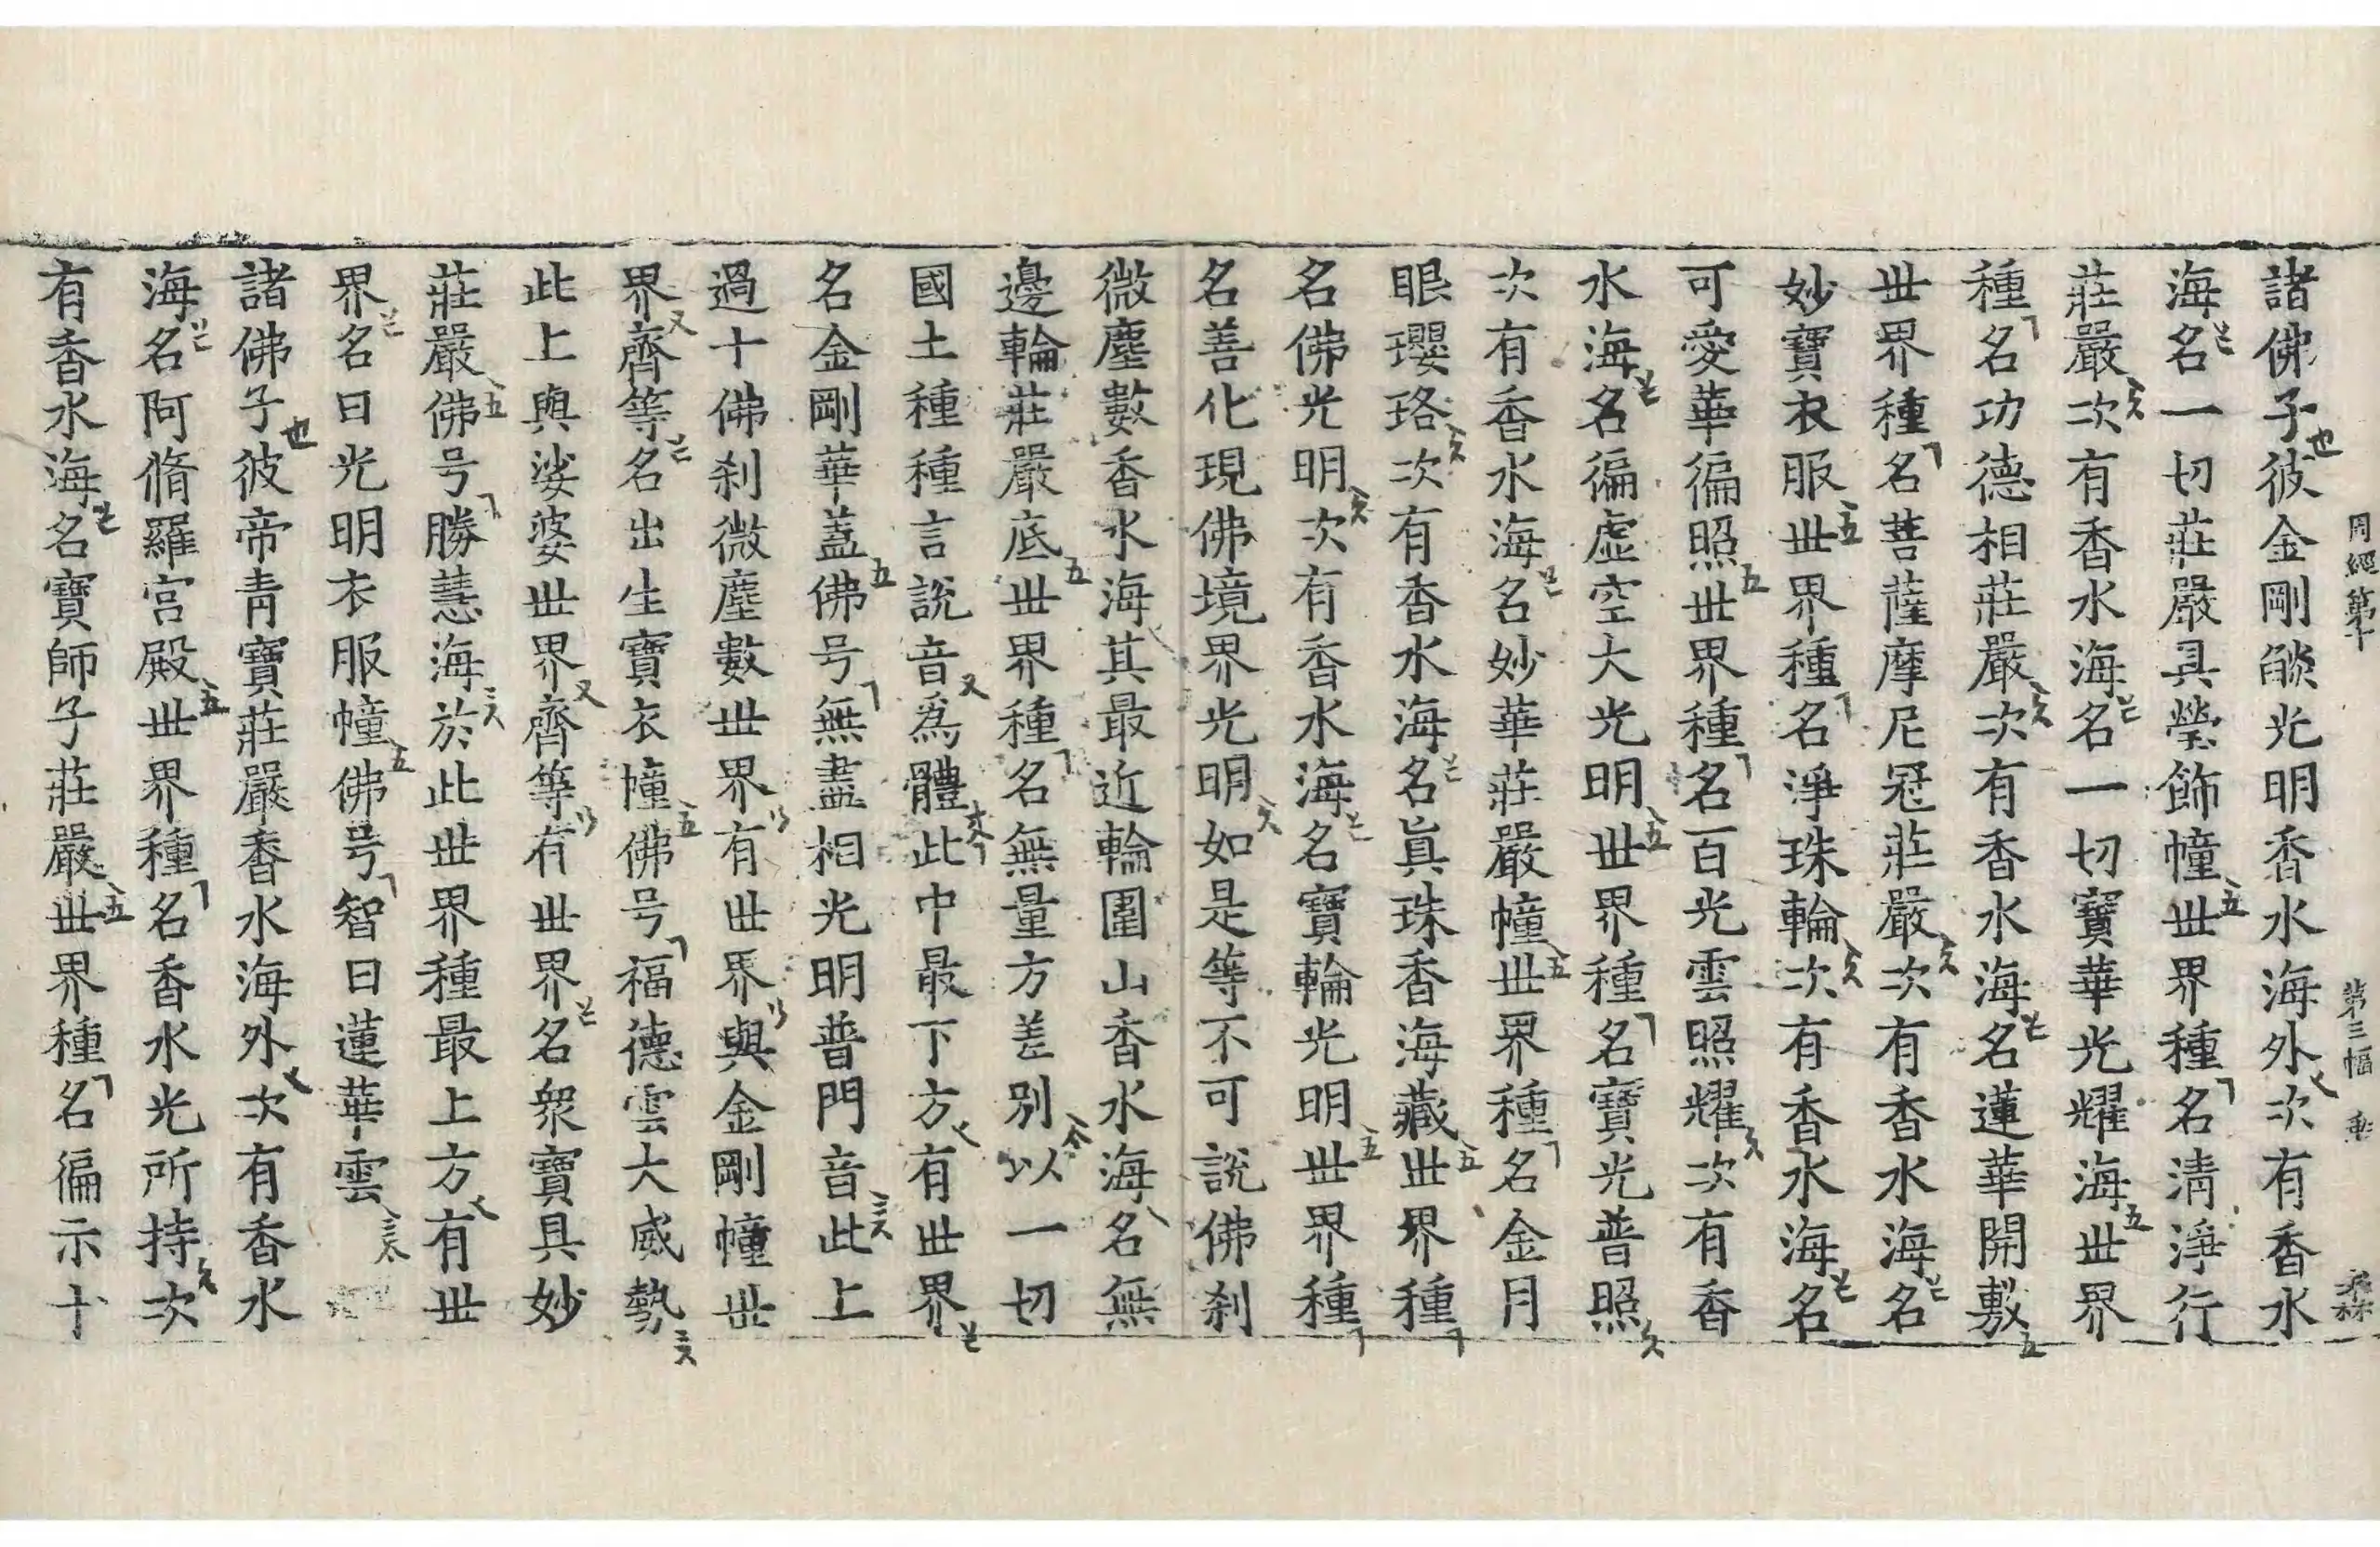 周經第十 第三幅
諸佛子彼金剛𦦨光明香水海外次有香水
海名一切莊嚴具瑩飾幢世界種名清淨行
莊嚴次有香水海名一切寶華光耀海世界
種名功德相莊嚴次有香水海名蓮華開敷
世界種名菩薩摩尼冠莊嚴次有香水海名
妙寶衣服世界種名淨珠輪次有香水海名
可愛華徧照世界種名百光雲照耀次有香
水海名徧虛空大光明世界種名寶光普照
次有香水海名妙華莊嚴幢世界種名金月
眼瓔珞次有香水海名眞珠香海藏世界種
名佛光明次有香水海名寶輪光明世界種
名善化現佛境界光明如是等不可說佛刹
微塵數香水海其最近輪圍山香水海名無
邊輪莊嚴底世界種名無量方差別以一切
國土種種言說音爲體此中最下方有世界
名金剛華蓋佛号無盡相光明普門音此上
過十佛刹微塵數世界有世界與金剛幢世
界齊等名出生寶衣幢佛号福德雲大威勢
此上與娑婆世界齊等有世界名衆寶具妙
莊嚴佛号勝慧海於此世界種最上方有世
界名日光明衣服幢佛号智日蓮華雲
諸佛子彼帝青寶莊嚴香水海外次有香水
海名阿脩羅宮殿世界種名香水光所持次
有香水海名寶師子莊嚴世界種名徧示十